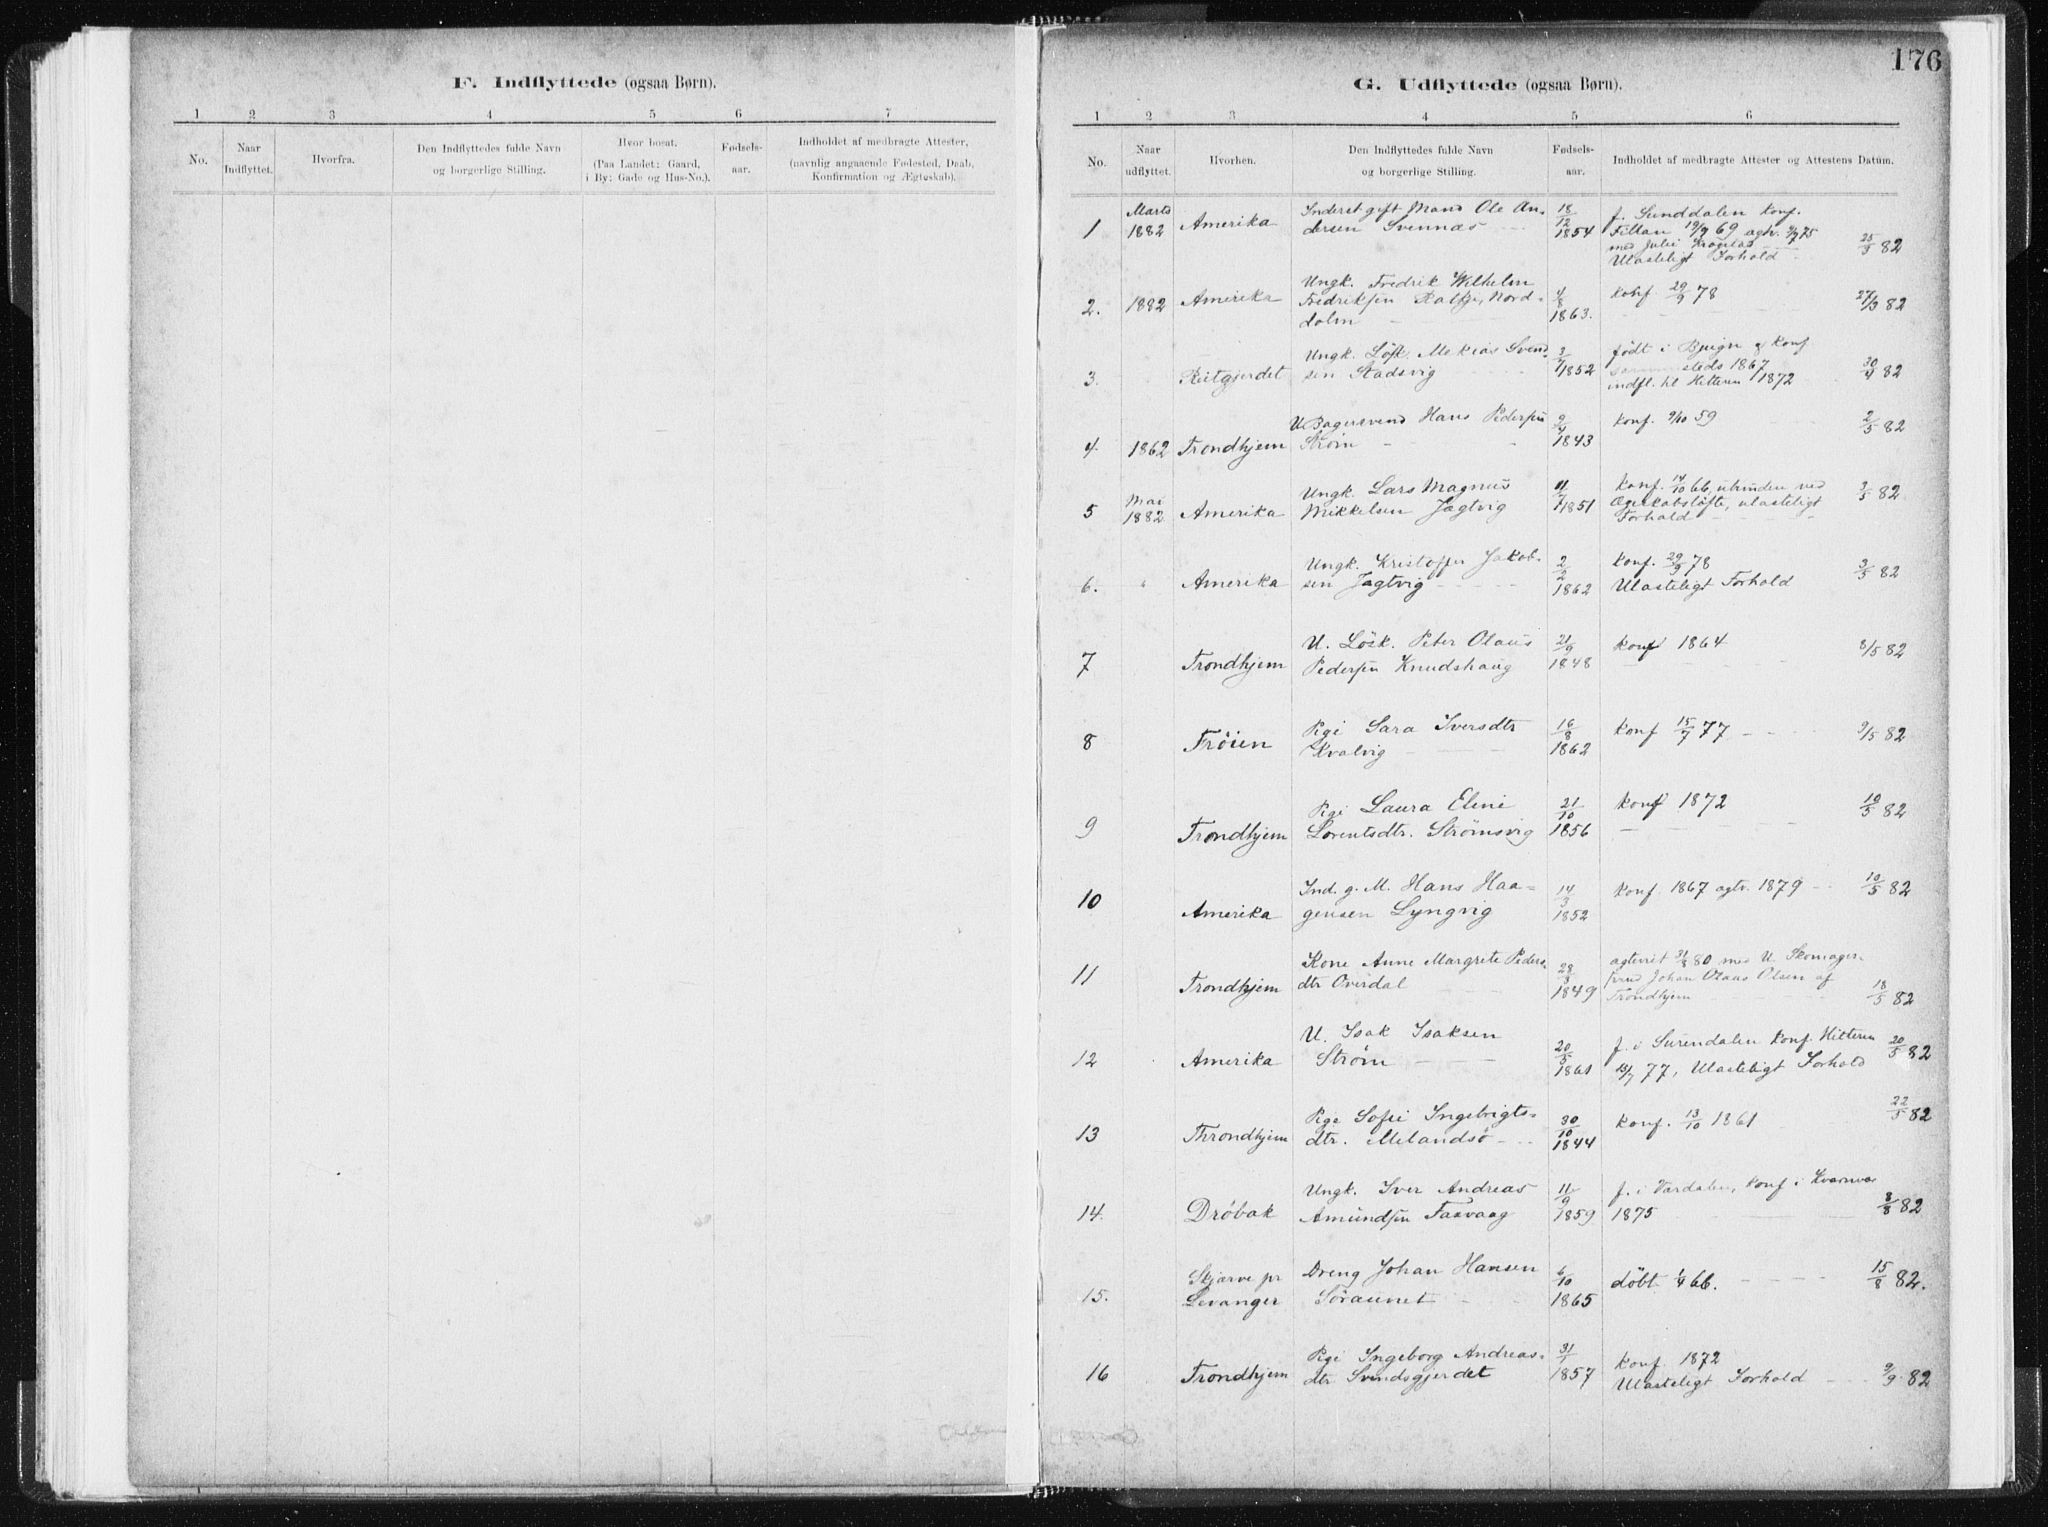 F. Indflyttede (ogsaa Børn).
1 2 3 4 5 6 7
No.
Naar
Indflyttet.
Hvorfra.
Den Indflyttedes fulde Navn
og borgerlige Stilling.
Hvor bosat.
(Paa Landet: Gaard,
i By: Gade og Hus-No.).
Fødsels-
aar.
Indholdet af medbragte Attester,
(navnlig angaaende Fødested, Daab,
Konfirmation og Ægteskab).
176
G. Udflyttede (ogsaa Børn).
1 2 3 4 5 6
No.
Naar
udflyttet.
Hvorhen.
Den Indflyttedes fulde Navn
og borgerlige Stilling.
Fødsels-
aar.
Indholdet af medbragte Attester og Attestens Datum.
1
Marts
1882
Amerika
Inderst gift Mand Ole An-
dersen Svennæs
18/12
1854
f. Sunddalen Konf.
Fillan 19/9 69 agtv. 75
med Julie Krogstad
Ulasteligt Forhold
25/3 82
2. 1882 Amerika
Ungk. Fredrik Wilhelm
Fredriksen Ratkje, Nord-
dolm
4/8
1863.
konf. 29/9 78
27/3 82
3. Reitgjerdet
Ungk. Løsk. Mekias Svend-
sen Stadsvig
3/7
1852
født i Bjugn & Konf
sammesteds 1867
indfl. til Hitteren 1872
30/4 82
4. 1862 Trondhjem
U Bagersvend Hans Pedersen
Strøm
1843
Konf. 9/10 59
2/5 82
5
Mai
1882
Amerika
Ungk. Lars Magnus
Mikkelsen Jagtvig
1851
Konf. 14/10 66, ubunden ved
Ægteskabsløfte, ulasteligt
Forhold
3/5 82
6. " Amerika
Ungk. Kristoffer Jakob-
sen Jagtvig
2/2
1862
Konf. 29/9 78
Ulasteligt Forhold
3/5 82
7 Trondhjem
U. Løsk. Peter Olaus
Pedersen Knudshaug
21/9
1848
Konf 1864
8/5 82
8 Frøien
Pige Sara Iversdtr
Kvalvig
16/8
1862
Konf 15/7 77
9/5 82
9 Trondhjem
Pige Laura Eline
Lorentsdtr. Strømsvig
21/10
1856
Konf 1872
10/5 82
10 Amerika
Ind. g. M. Hans Haa-
gensen Lyngvig
14/3
1852
Konf. 1867 agtv. 1879
10/5 82
11 Trondhjem
Kone Anne Margrete Peders-
dtr Overdal
28/3
1849
agteviet 80 med U. Skomager-
svend Johan Olaus Olsen af
Trondhjem
18/5 82
12 Amerika
U. Isak Isaksen
Strøm
20/5
1861
f. i Surendalen Konf. Hitteren
15/7 77, Ulasteligt Forhold
20/5 82
13 Throndhjem
Pige Sofie Ingebrigts-
dtr. Melandsø
30/10
1844
Konf. 13/10 1861
22/5 82
14. Drøbak
Ungk. Iver Andreas
Amundsen Faxvaag
11/9
1859
f. i Værdalen, Konf i Kvernæs
1875
8/8 82
15.
Skjærve pr
Levanger
Dreng Johan Hansen
Søraunet
6/10
1865
døbt 1/4 66.
15/8 82.
16 Trondhjem
Pige Ingeborg Andreas-
dtr Svendsgjerdet
31/1
1857
Konf. 1872
Ulasteligt Forhold
9/9 82